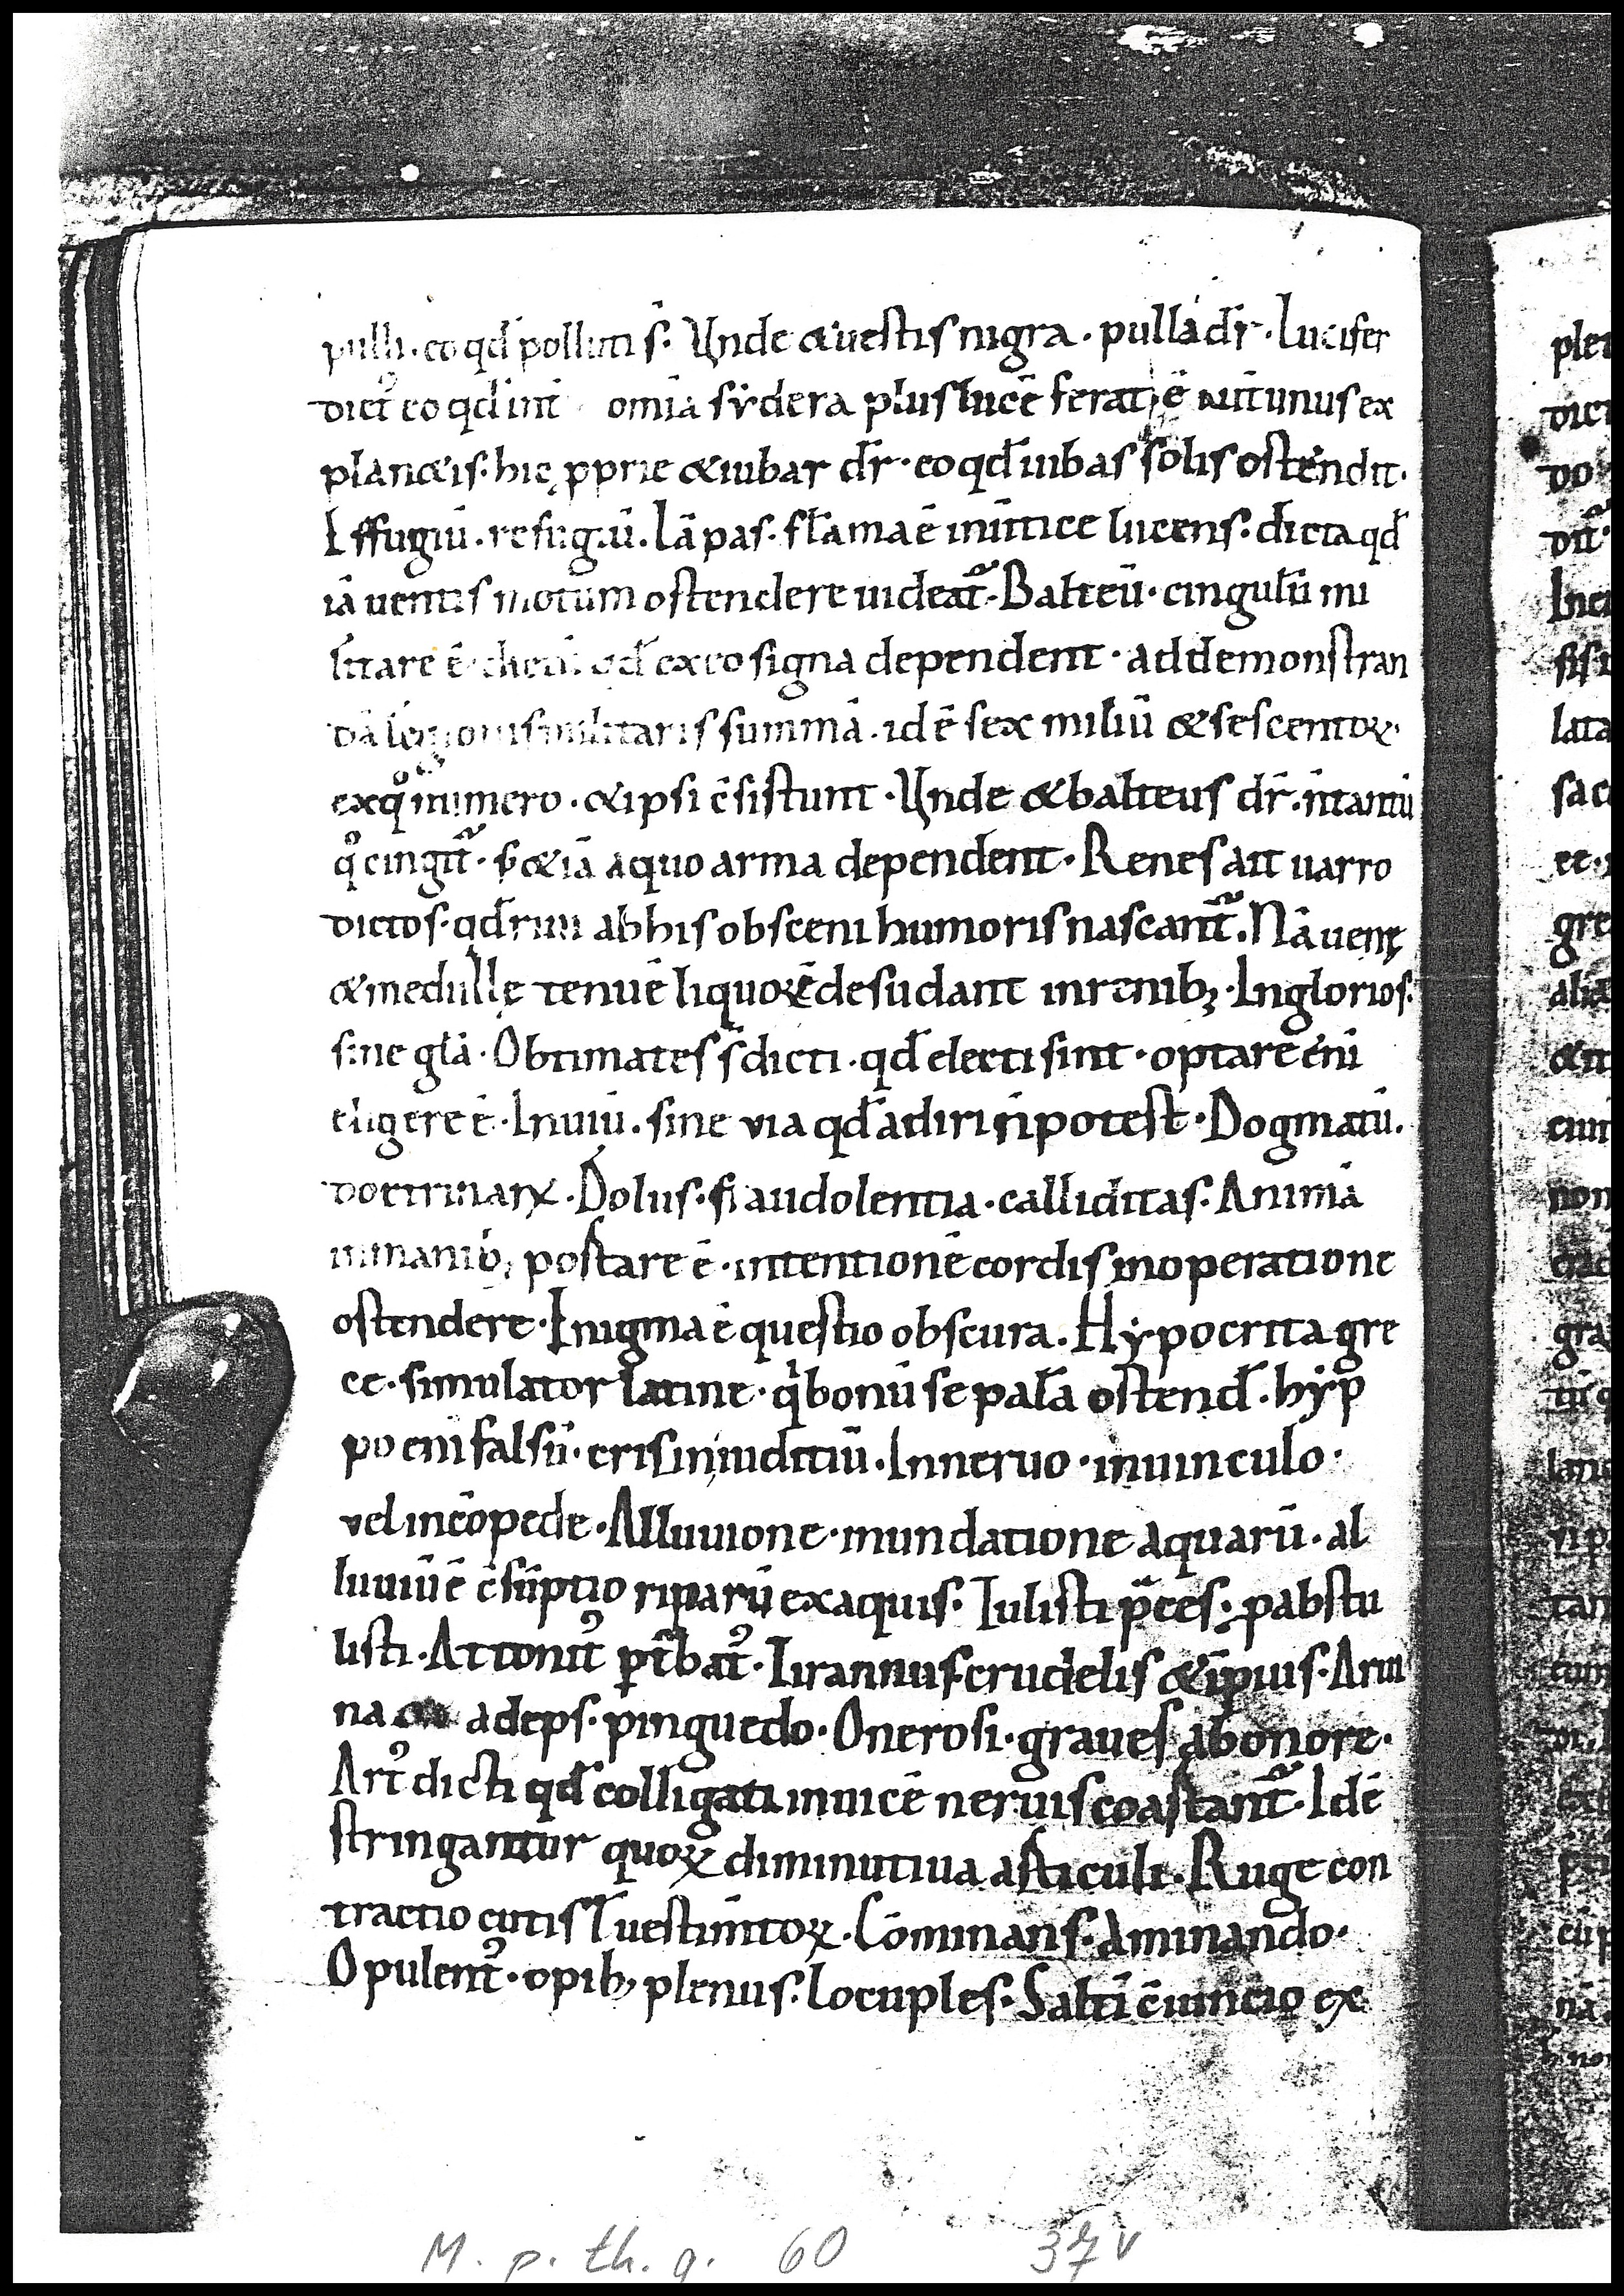 pulli. eo qđ polluti s̄. Unde & uestis nigra. pulla dr̄. Lucifer
dict᷒ eo qđ int̄ omīa sydera plus lucē ferat. ē aut̄ unus ex
plan&is. hic ꝓprie & iubar dr̄. eo qđ iubas solis ostendit.
Effugiū. refugiū. Lāpas. flāma ē in uertice lucens. dicta qđ
iā uentis motum ostendere uideat᷑. Balteū. cingulū mi
litare ē. dictū qđ ex eo signa dependent. ad demonstran
dā legionis militaris summā. id ē sex miliū & sescentoꝝ.
ex qͦ numero. & ipsi c̄sistunt. Unde & balteus dr̄. n̄ tantū
qͦ cingit᷑. s; &iā a quo arma dependent. Renes ait uarro
dictos. qđ riui ab his obsceni humoris nascant᷑. Nā uenę
& medullę tenuē liquorē desudant in renib;. Inglorios.
sine gl̄a. Obtimates s̄ dicti. qđ electi sint. optare eni
eligere ē. Inuiū. sine via qđ adiri n̄ potest. Dogmatū.
doctrinaꝝ. Dolus. fraudolentia. calliditas. Animā
in manib; postare ē. intentionē cordis in operatione
ostendere. Enigma ē questio obscura. Hypocrita gre
ce. simulator latine. qͥ bonū se palā ostend̄. hyp
po eni falsū. crisin iuditiū. In neruo. in uinculo.
vel in cōpede. Alluuione. inundatione aquarū. al
luuiū ē c̄sūptio riparū ex aquis. Tulisti p̄ces. ꝓ abstu
listi. Attonit᷒ ꝑt̄bat᷒. Tirannus crudelis & īpius. Arui
na adeps. pinguedo. Onerosi. graues ab onore.
Art᷒ dicti qđ colligati inuicē neruis coartant᷑. Id ē
stringantur quoꝝ diminutiua articuli. Ruge con
tractio cutis ł uestim̄toꝝ. Cōminans. A minando.
Opulent᷒. opib; plenus. Locuples. Saltī ē uincio ex
M. p. th. q. 60 37 v